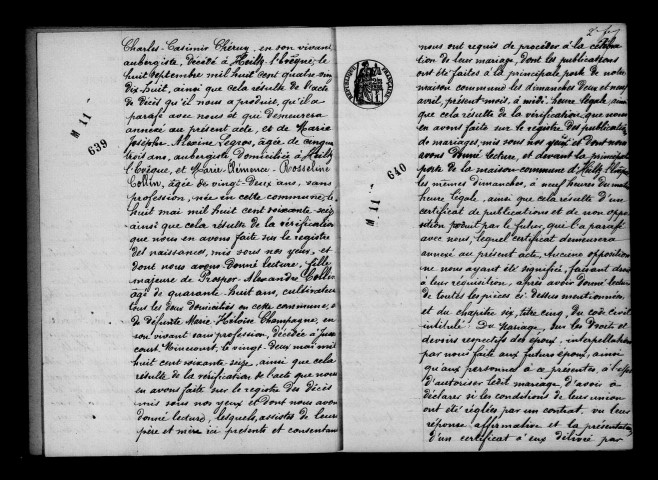 Charles-Casimir Chéruy, en son vivant
aubergiste, décédé à Heiltz-l'Evêque, le
huit Septembre mil huit cent quatre-vingt
dix-huit, ainsi que cela résulte de l'acte
de décès qu'il nous a produit, qu'il a
parafé avec nous et qui demeurera
annexé au présent acte, et de Marie
Joséphe Alexine Legros, âgée de cinquante
trois ans, aubergiste domiciliée à Heiltz
l'Evêque, et Marie-Clémence-Rosseline
Collin, âgée de vingt-deux ans, sans
profession, née en cette commune, le
huit mai mil huit cent soixante-seize
ainsi que cela résulte de la vérification
que nous en avons faite sur le registre
des naissances, mis sous nos yeux, et
dont nous avons donné lecture, fille
majeure de Prosper-Alexandre Collin
âgé de quarante-huit ans, cultivateur
tous les deux domiciliés en cette commune, et
de défunte Marie-Héloïse Champagne, en
son vivant sans profession, décédée à
court-Minecourt, le vingt-deux mai mil
huit cent soixante-seize, ainsi que cela
résulte de la vérification de l'acte que nous
en avons faite sur le registre des décès
mis sous nos yeux et dont nous avons
donné lecture, lesquels, assistés de leurs
père et mère ici présents et consentant
M 11
639
RÉPUBLIQUE FRANÇAISE
M 11
640
nous ont requis de procéder à la célébra
tion de leur mariage, dont les publications
ont été faites à la principale porte de notre
maison commune les dimanches deux et neuf
avril, présent mois, à midi, heure légale, ainsi
que cela résulte de la vérification que nous
en avons faite sur le registre des publications
de mariages, mis sous nos yeux et dont nous
avons donné lecture, et devant la principale
porte de la maison commune d'Heiltz-l'Evêque
les mêmes dimanches, à neuf heures du matin
heure légale, ainsi que cela résulte d'un
certificat de publications et de non oppo
sition produit par le futur, qui l'a parafé
avec nous, lequel certificat demeurera
annexé au présent acte, Aucune opposition
ne nous ayant été signifiée, faisant droit
à leur réquisition, après avoir donné lecture
de toutes les pièces ci-dessus mentionnées
et du chapitre six, titre cinq, du code civil
intitulé : Du Mariage, sur les Droits et
devoirs respectifs des époux, interpellation
par nous faite aux futurs époux, ainsi
qu'aux personnes à ce présentes, à l'effet
d'autoriser ledit mariage, d'avoir à
déclarer si les conditions de leur union
ont été réglées par un contrat, vu leur
réponse affirmative et la présentation
d'un certificat à eux délivré par